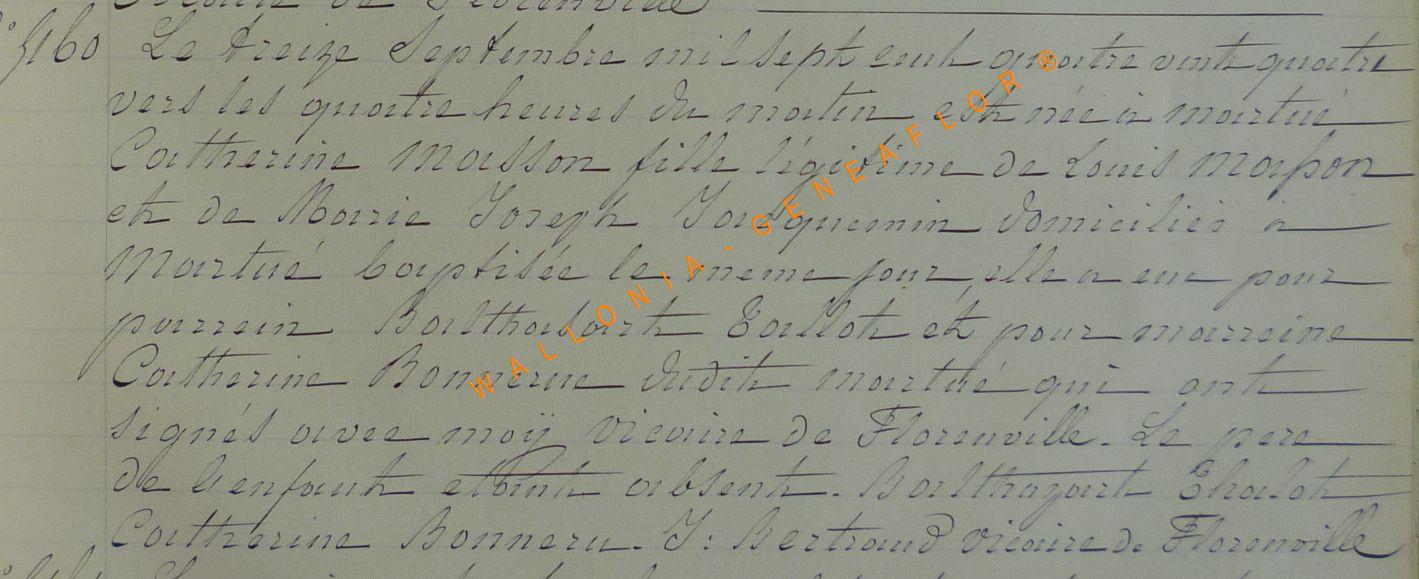 vicaire de Florenville
N° 5160 Le treize Septembre mil sept cent quatre vint quatre
vers les quatre heures du matin est née à martué
Catherine Masson fille légitime de Louis Masson
et de Marie Joseph Jacquemin domiciliés à
Martué baptisée le meme jour, elle a eue pour
parrein Balthasart Tallot et pour marreine
Catherine Bonnerue dudit martué qui ont
signés avec moÿ vicaire de Florenville. Le pere
de l'enfant etant absent. Balthazart Thalot
Catherine Bonneru. J: Bertrand vicaire de Florenville
WALLONIA - GENEAFLOR ©